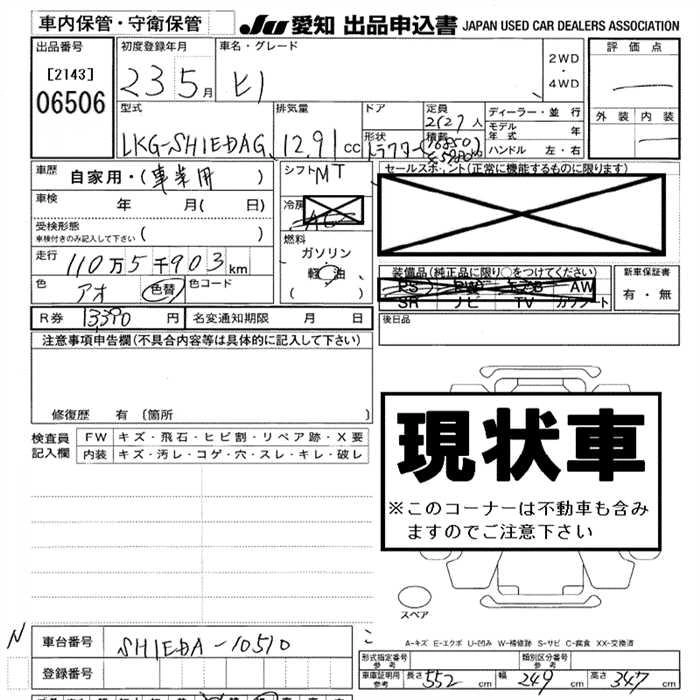 車内保管・守衛保管
JU 愛知 出品申込書 JAPAN USED CAR DEALERS ASSOCIATION
出品番号
[2143]
06506
初度登録年月
23 5月
車名・グレード
ヒノ
2WD
・
4WD
評価点
外装 内装
型式
LKG-SHIEDAG
排気量
12.91cc
ドア
形状
トラクター
定員
2(2)人
積載
ディーラー・並行
モデル年式 年
ハンドル 左・右
車歴
自家用・(事業用)
車検
年 月( 日)
受検形態
車検付きのみ記入して下さい ( )
走行
110万5千903km
色
アオ
色替
色コード
シフト MT
冷房
AC
燃料
ガソリン
軽油
( )
セールスポイント(正常に機能するものに限ります)
装備品(純正品に限り○をつけてください)
PS PW エアB AW
SR ナビ TV カワシート
新車保証書
有・無
後日品
R券 13390円
名変通知期限 月 日
注意事項申告欄(不具合内容等は具体的に記入して下さい)
修復歴 有 〔箇所 〕
検査員記入欄
FW キズ・飛石・ヒビ割・リペア跡・X要
内装 キズ・汚レ・コゲ・穴・スレ・キレ・破レ
現状車
※このコーナーは不動車も含み
ますのでご注意下さい
スペア
A-キズ E-エクボ U-凹み W-補修跡 S-サビ C-腐食 XX-交換済
N
車台番号
SHIEDA-10510
登録番号
型式指定番号
参考
類別区分番号
参考
車庫証明用
参考
長さ 552 幅 249 高さ 347